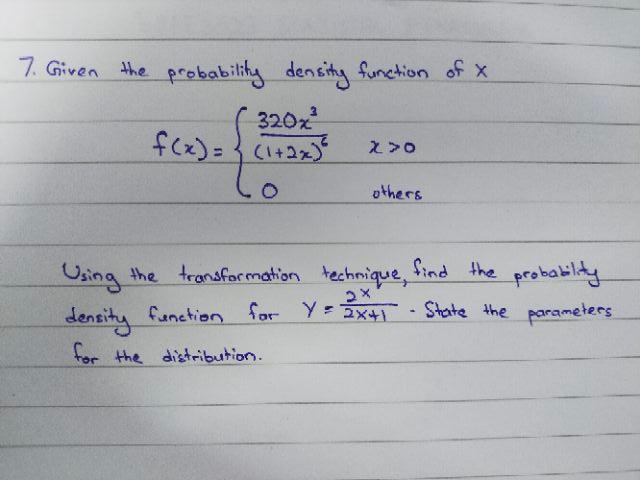 7. Given the probability density function of X
f(x) = { 320x³ / (1+2x)⁶ x>0
0 others
Using the transformation technique, find the probability
density function for Y = 2X / 2X+1 . State the parameters
for the distribution.